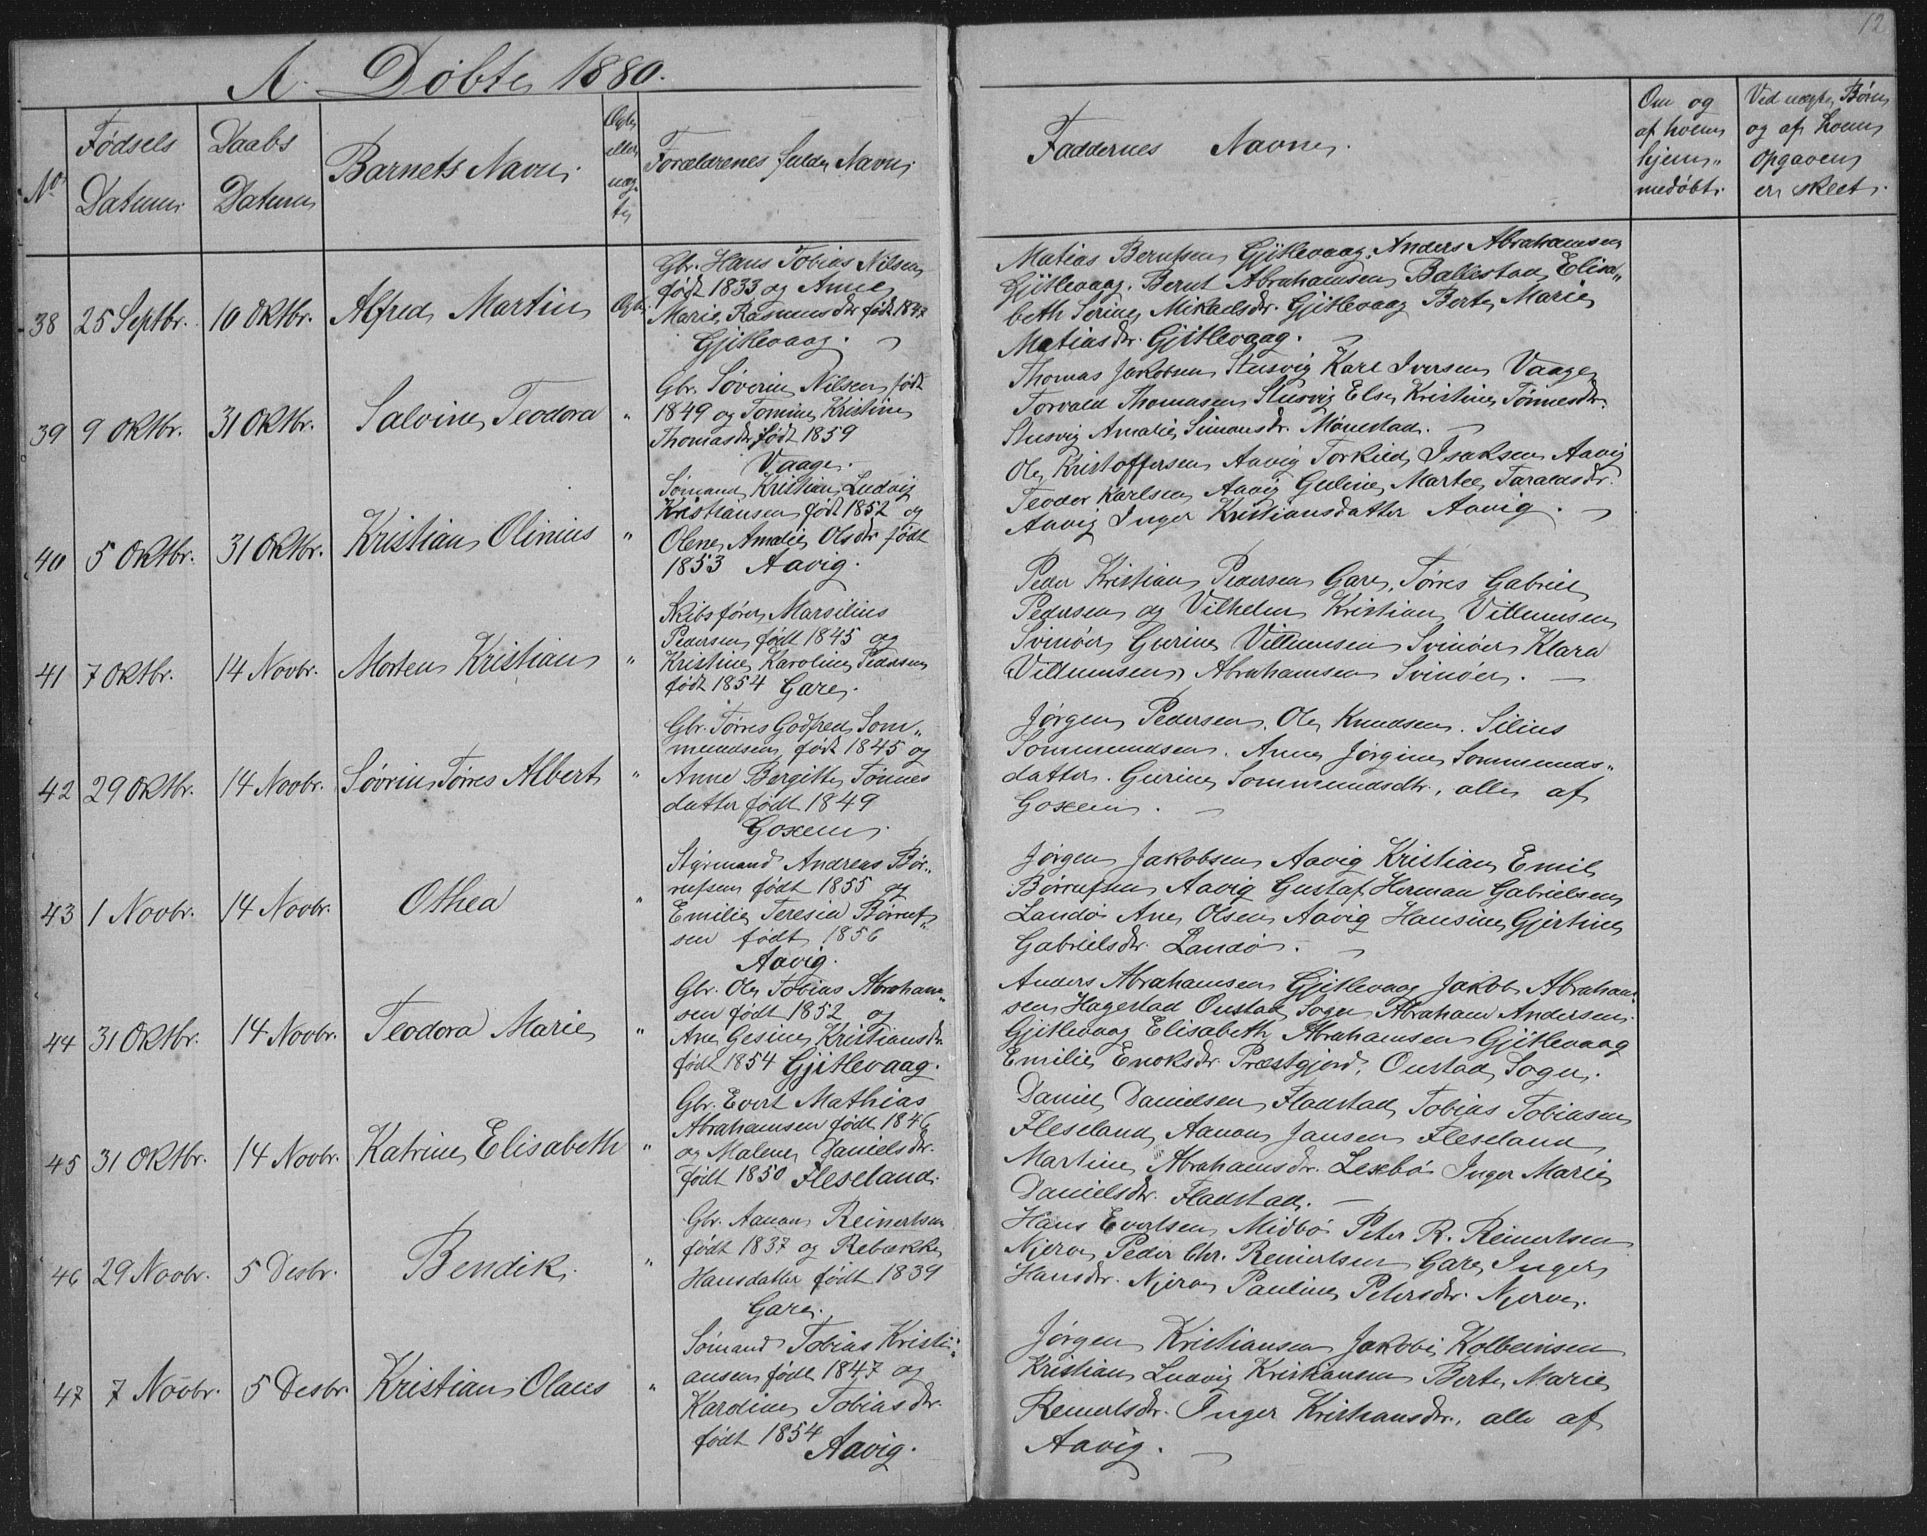 12
A. Døbte 1880.
No.
Fødsels Datum.
Daabs Datum
Barnets Navn.
Ægte eller uægte
Forældrenes fulde Navn.
Faddernes Navne.
Om og af hvem hjemmedøbt.
Ved uægte Børn og af hvem Opgaven er skeet.
38 25 Septbr. 10 Oktbr. Alfred Martin Ægte
Gbr. Hans Tobias Nilsen
født 1833 og Anne
Marie Rasmusdtr født 1842
Gjitlevaag.
Matias Berntsen Gjitlevaag. Anders Abrahamsen
Gjitlevaag. Bernt Abrahamsen Ballestad Elisa„
beth Serine Mikkelsdr. Gjitlevaag Berte Marie
Matiasdr. Gjitlevaag.
39 9 Oktbr. 31 Oktbr. Salvine Teodora „
Gbr. Søverin Nilsen født
1849 og Tomine Kristine
Thomasdr født 1859
Vaage.
Thomas Jakobsen Stusvig Karl Iversen Vaage
Torvald Thomasen Stusvig Else Kristine Tønnesdr.
Stusvig Amalie Simonsdr. Mønestad.
40 5 Oktbr. 31 Oktbr. Kristian Olinius „
Sømand Kristian Ludvig
Kristiansen født 1852 og
Olene Amalie Olsdr født
1853 Aavig.
Ole Kristoffersen Aavig Torkild Isaksen Aavig
Teodor Karlsen Aavig Guline Martee Taraldsdr.
Aavig Inger Kristiansdatter Aavig.
41 7 Oktbr. 14 Novbr. Morten Kristian „
Skibsfører Marsilius
Pedersen født 1845 og
Kristine Karoline Pedersen
født 1854 Gare.
Peder Kristian Pedersen Gare, Tørres Gabriel
Pedersen og Vilhelm Kristian Villumsen
Svinøer Gurine Villumsen Svinøer Klara
Villumsen Abrahamsen Svinøer.
42 29 Oktbr. 14 Novbr. Søvrin Tørres Albert „
Gbr. Tørres Godfred Som„
mundsen født 1845 og
Anne Bergitte Tønnes
datter født 1849
Goxem.
Jørgen Pedersen. Ole Knudsen. Silius
Sommundsen. Anne Jørgine Sommunds„
datter. Gurine Sommundsdtr., alle af
Goxem.
43 1 Novbr. 14 Novbr. Othea „
Styrmand Andreas Bør„
rufsen født 1855 og
Emilie Teresia Børruf„
sen født 1856
Aavig.
Jørgen Jakobsen Aavig Kristian Emil
Børrufsen Aavig Gustaf Herman Gabrielsen
Landø Ane Olsen Aavig Hansine Gjertine
Gabrielsdr. Landø.
44 31 Oktbr. 14 Novbr. Teodora Marie „
Gbr. Ole Tobias Abraham„
sen født 1852 og
Ane Gesine Kristiansdr
født 1854 Gjitlevaag.
Anders Abrahamsen Gjitlevaag Jakob Abraham„
sen Hagestad Oustad Sogn Abraham Andersen
Gjitlevaag Elisabeth Abrahamsen Gjitlevaag
Emilie Enoksdr. Præstgjord, Oustad Sogn.
45 31 Oktbr. 14 Novbr. Katrine Elisabeth „
Gbr. Evert Mathias
Abrahamsen født 1846
og Malene Danielsdr.
født 1850 Fleseland.
Daniel Danielsen Fladstad Tobias Tobiasen
Fleseland, Aanon Jansen Fleseland
Martine Abrahamsdr. Lexebø Inger Marie
Danielsdr. Fladstad.
46 29 Novbr. 5 Desbr. Bendik. „
Gbr. Aanon Reinertsen
født 1837 og Rebække
Hansdatter født 1839
Gare.
Hans Evertsen Midbø Peter R. Reinertsen
Njerve Peder Chr. Reinertsen Gare, Inger
Hansdr. Njerve Pauline Petersdr. Njerve.
47 7 Novbr. 5 Desbr. Kristian Olaus „
Sømand Tobias Kristi„
ansen født 1847 og
Karoline Tobiasdr.
født 1854 Aavig.
Jørgen Kristiansen Jakobi Kolbeinsen
Kristian Ludvig Kristiansen Berte Marie
Reinertsdr. Inger Kristiansdr., alle af
Aavig.